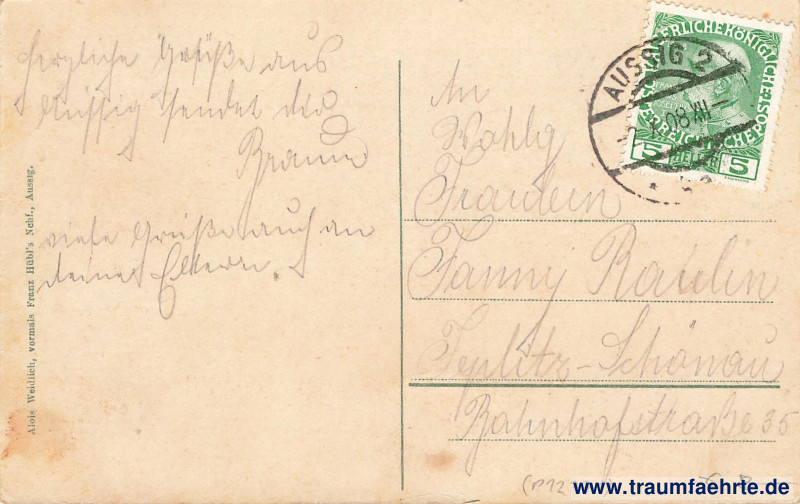 herzliche Grüße aus
Aussig sendet dir
viele Grüße auch an
deine Eltern.
Alois Weidlich, vormals Franz Hübl's Nchf., Aussig.
An
Wohlg
Fräulein
Fanny
Teplitz-Schönau
Bahnhofstraße 35
KAISERLICHE KÖNIGLICHE
ÖSTERREICHISCHE POST
5 HELLER 5
AUSSIG 2
08 XII
www.traumfaehrte.de